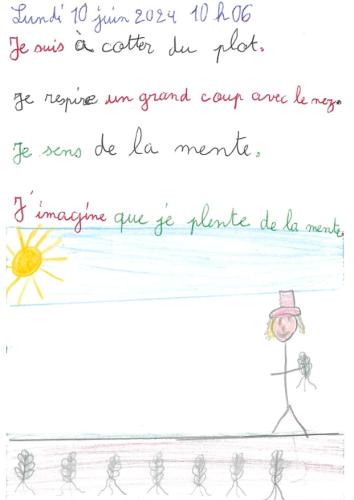 Lundi 10 juin 2024 10 h 06
Je suis à cotter du plot.
je respire un grand coup avec le nez.
Je sens de la mente.
J'imagine que je plente de la mente.